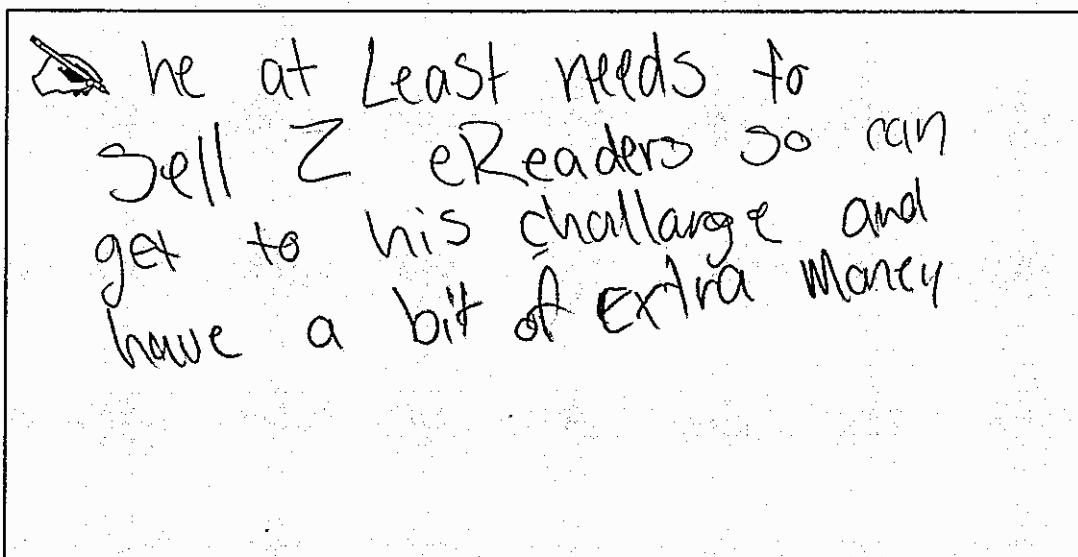 he at Least needs to
Sell 2 eReaders so can
get to his challange and
have a bit of Extra Money